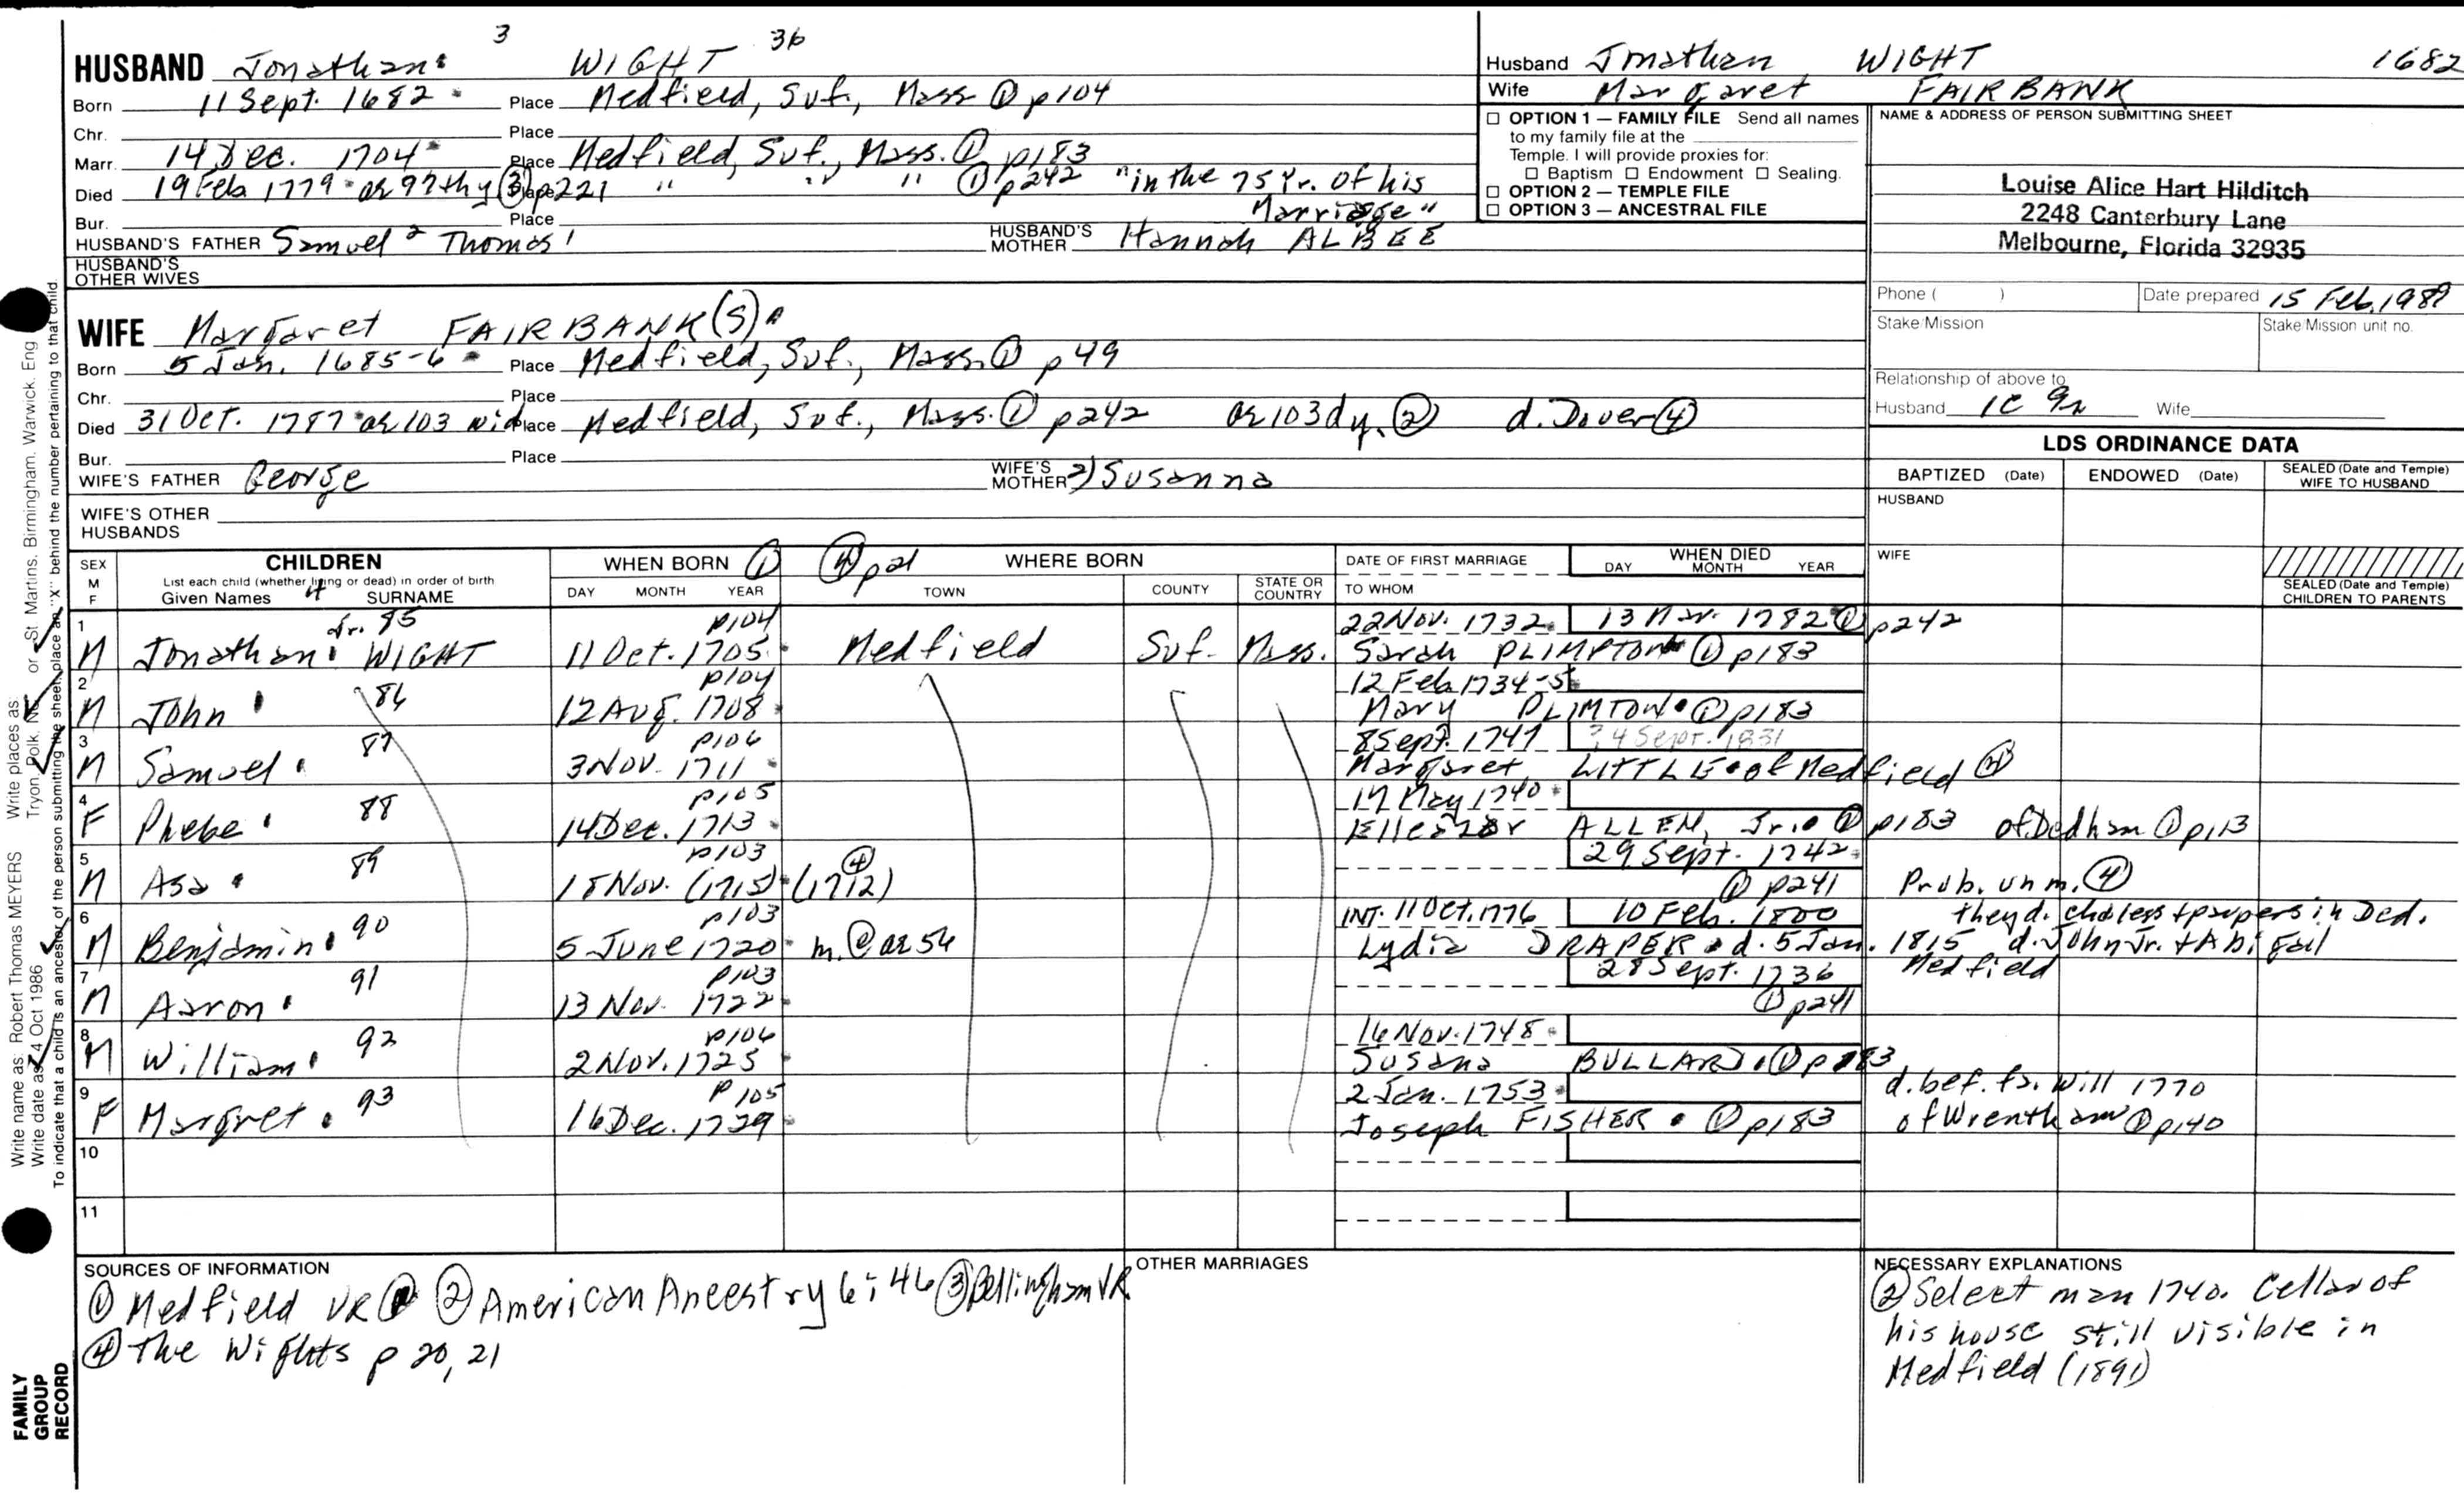 3 36
HUSBAND Jonathan WIGHT
Born 11 Sept. 1682 Place Medfield, Suf., Mass ① p104
Chr. Place
Marr. 14 Dec. 1704 Place Medfield, Suf., Mass. ① p183
Died 19 Feb 1779 ae 97thy ③ p221 Place " " " ① p242 "in the 75 Yr. of his
Marriage"
Bur. Place
HUSBAND'S FATHER Samuel 2 Thomas 1 HUSBAND'S MOTHER Hannah ALBEE
HUSBAND'S OTHER WIVES
WIFE Margaret FAIRBANK(S)
Born 5 Jan. 1685-6 Place Medfield, Suf., Mass. ① p49
Chr. Place
Died 31 Oct. 1787 ae 103 wid Place Medfield, Suf., Mass. ① p242 ae 103 dy. ② d. Dover ④
Bur. Place
WIFE'S FATHER George WIFE'S MOTHER 2) Susanna
WIFE'S OTHER HUSBANDS
Husband Jonathan WIGHT 1682
Wife Margaret FAIRBANK
☐ OPTION 1 — FAMILY FILE Send all names
to my family file at the
Temple. I will provide proxies for:
☐ Baptism ☐ Endowment ☐ Sealing.
☐ OPTION 2 — TEMPLE FILE
☐ OPTION 3 — ANCESTRAL FILE
NAME & ADDRESS OF PERSON SUBMITTING SHEET
Louise Alice Hart Hilditch
2248 Canterbury Lane
Melbourne, Florida 32935
Phone ( ) Date prepared 15 Feb. 1989
Stake/Mission Stake/Mission unit no.
Relationship of above to
Husband 1C 9r Wife
LDS ORDINANCE DATA
BAPTIZED (Date) ENDOWED (Date) SEALED (Date and Temple) WIFE TO HUSBAND
HUSBAND
WIFE
SEALED (Date and Temple) CHILDREN TO PARENTS
SEX M F CHILDREN WHEN BORN ① ④ p21 WHERE BORN DATE OF FIRST MARRIAGE WHEN DIED
List each child (whether living or dead) in order of birth
Given Names 4 SURNAME DAY MONTH YEAR TOWN COUNTY STATE OR COUNTRY TO WHOM DAY MONTH YEAR
1 Jr. 85 p104 22 Nov. 1732 13 Mar. 1782 ① p242
M Jonathan WIGHT 11 Oct. 1705 Medfield Suf. Mass. Sarah PLIMPTON ① p183
2 86 p104 12 Feb 1734-5
M John 12 Aug. 1708 Mary PLIMTON ① p183
3 87 p106 8 Sept. 1747 ?4 Sept. 1831
M Samuel 3 Nov. 1711 Margaret LITTLE of Medfield ④
4 88 p105 17 May 1740
F Phebe 14 Dec. 1713 Elleazar ALLEN, Jr. ① p183 of Dedham ① p113
5 89 p103 ④ 29 Sept. 1742
M Asa 18 Nov. (1715) (1712) ① p241 Prob. unm. ④
6 90 p103 INT. 11 Oct. 1776 10 Feb. 1800 they d. chdless & paupers in Ded.
M Benjamin 5 June 1720 m. @ ae 54 Lydia DRAPER d. 5 Jan. 1815 d. John Jr. & Abigail
Medfield
7 91 p103 28 Sept. 1736
M Aaron 13 Nov. 1722 ① p241
8 92 p106 16 Nov. 1748
M William 2 Nov. 1725 Susana BULLARD ① p183
9 93 p105 2 Jan. 1753 d. bef. fs. will 1770
F Margret 16 Dec. 1729 Joseph FISHER ① p183 of Wrentham ① p140
10
11
SOURCES OF INFORMATION
① Medfield VR ② American Ancestry 6:46 ③ Bellingham VR
④ The Wights p 20, 21
OTHER MARRIAGES
NECESSARY EXPLANATIONS
② Select man 1740. Cellar of
his house still visible in
Medfield (1891)
Write name as: Robert Thomas MEYERS Write places as: Tryon, Polk, NC or St Martins, Birmingham, Warwick, Eng
Write date as: 4 Oct 1986
To indicate that a child is an ancestor of the person submitting the sheet, place an "X" behind the number pertaining to that child.
FAMILY
GROUP
RECORD